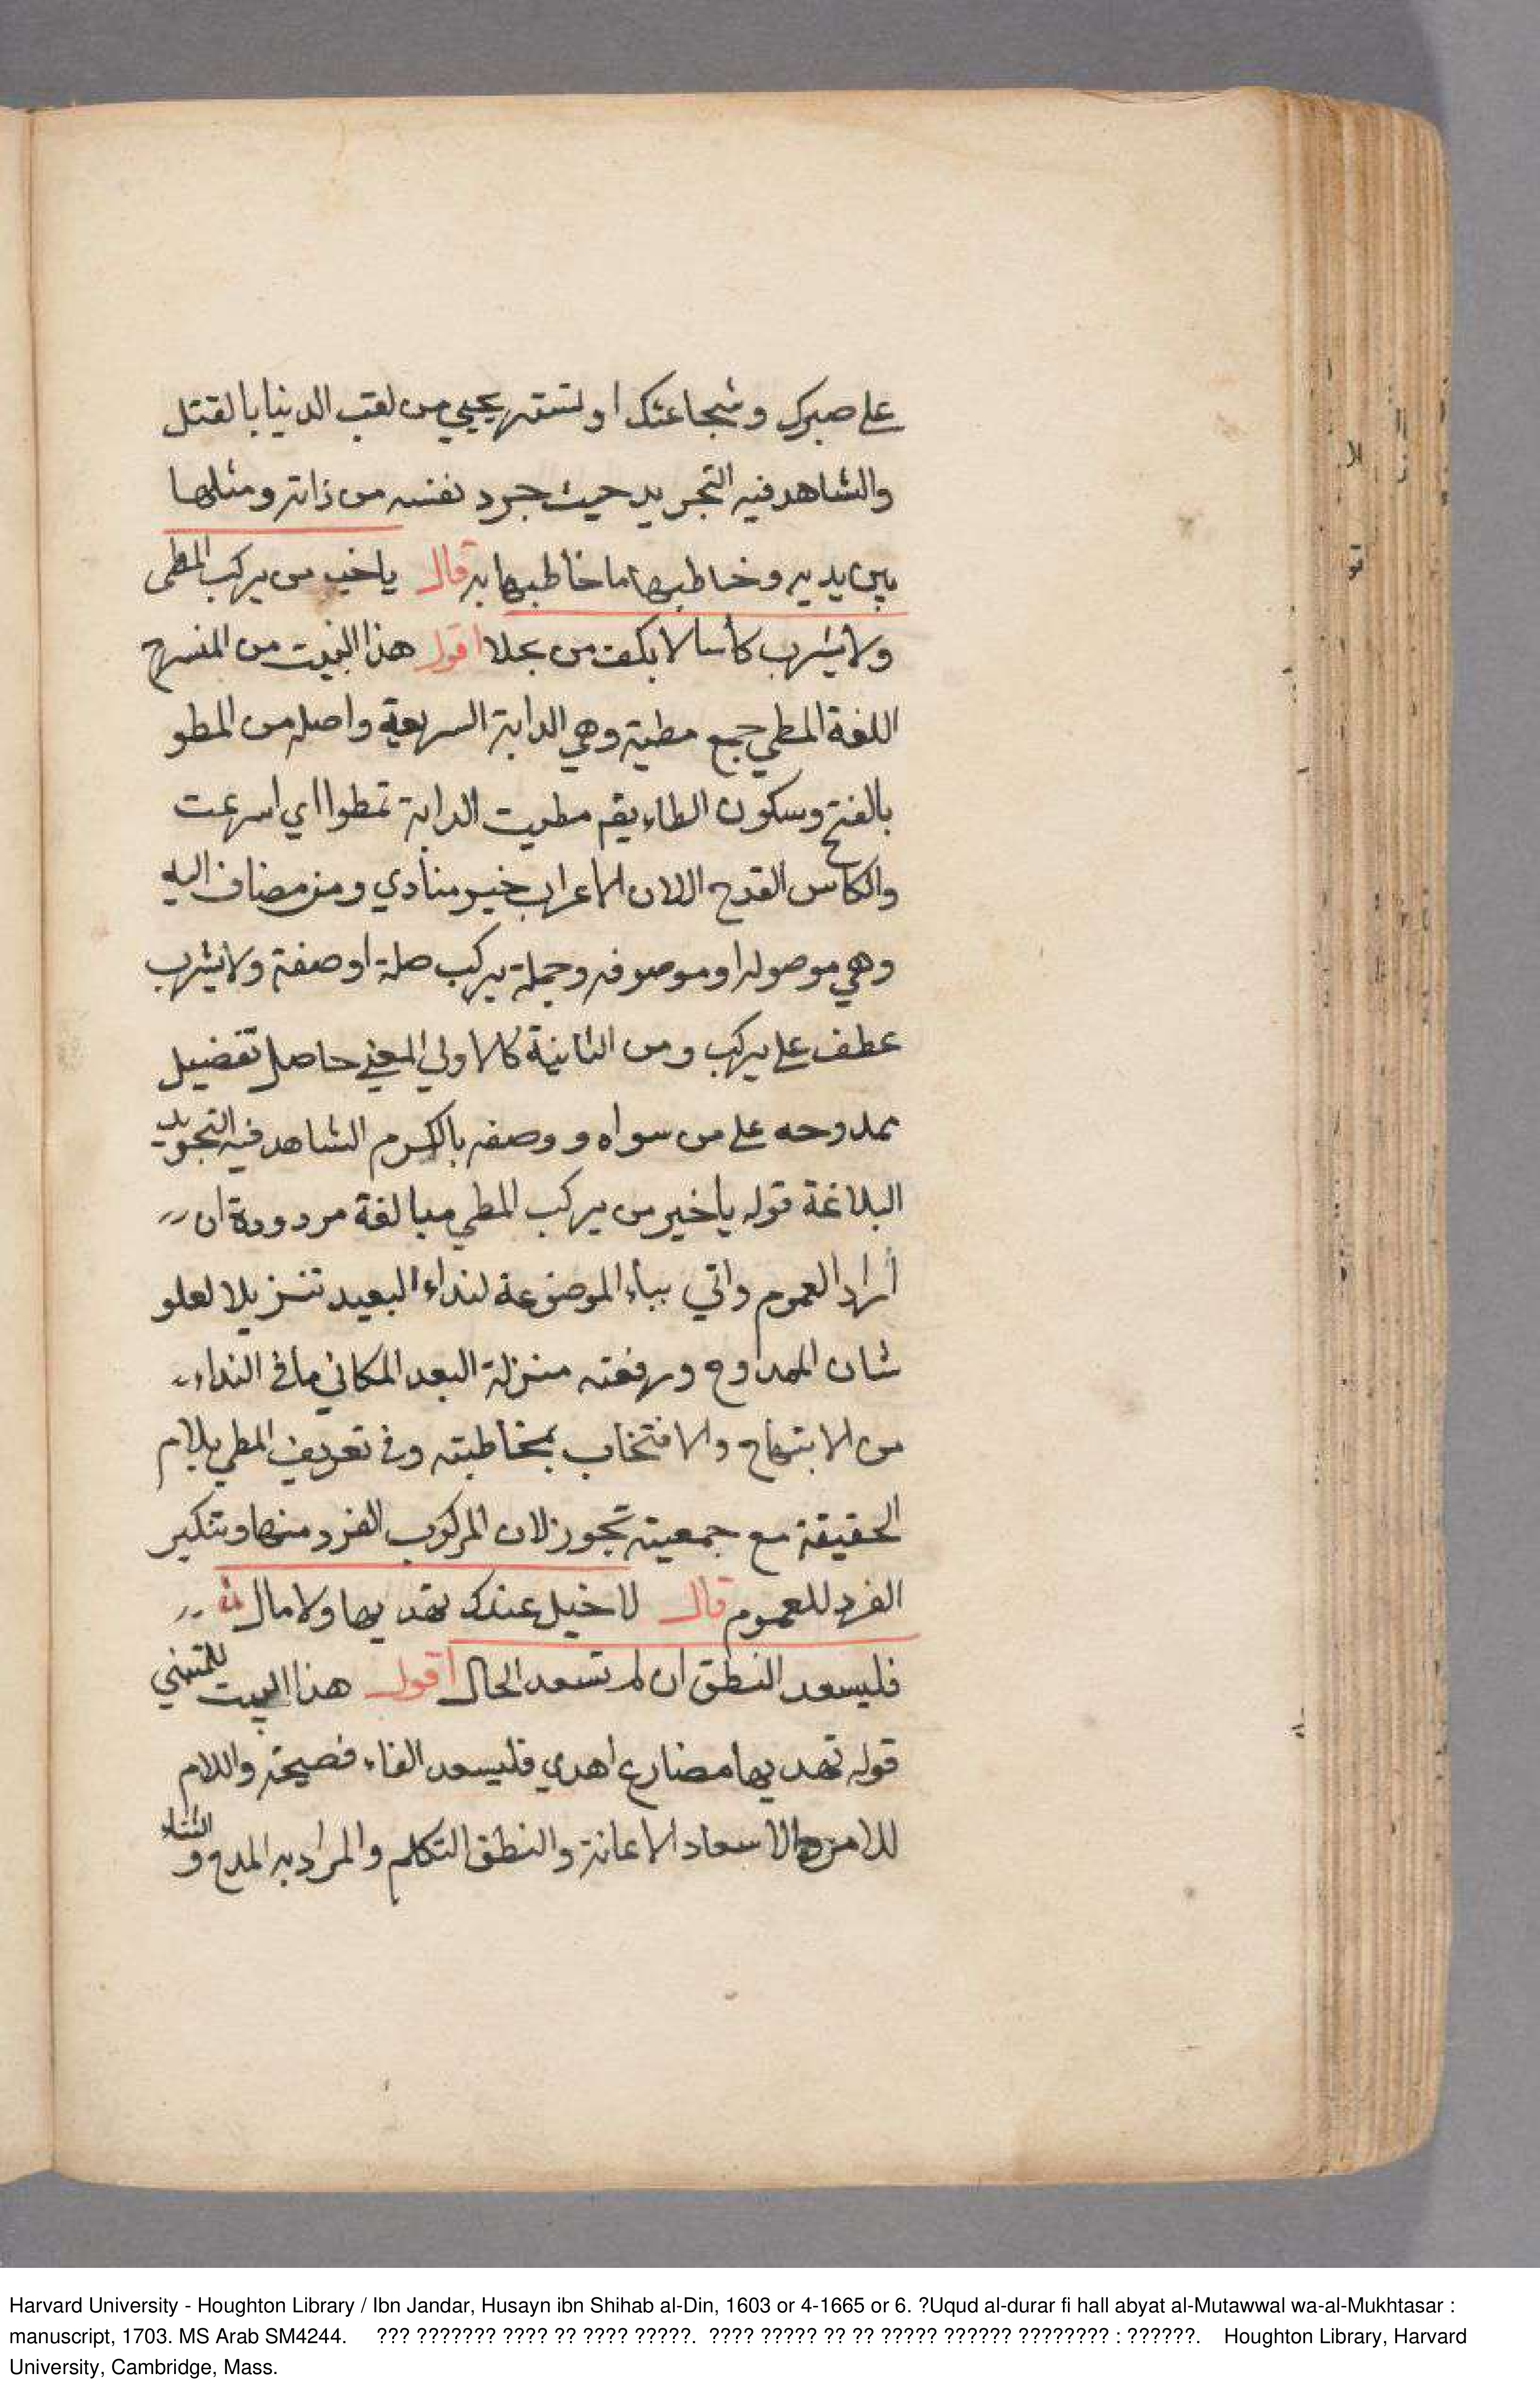 على صبرك وشجاعتك او لتستريحي من تعب الدنيا بالقتل
والشاهد فيه التجريد حيث جرد نفسه من ذاته ومثلها
بين يديه وخاطبها ما خاطبها به قال يا خير من يركب المطي
ولا يشرب كأسا لا بكف من بخلا اقول هذا البيت من المنسرح
اللغة المطي جمع مطية وهي الدابة السريعة واصله من المطو
بالفتح وسكون الطاء يقم مطيت الدابة تمطوا اي اسرعت
والكاس القدح الملان الاعراب خير منادي ومن مضاف اليه
وهي موصوله او موصوفه وجملة يركب صلة او صفة ولا يشرب
عطف على يركب ومن الثانية كالاولي المعني حاصل تفضيل
ممدوحه على من سواه ووصفه بالكرم الشاهد فيه التجريد
البلاغة قوله يا خير من يركب المطي مبالغة مردودة ان
أراد العموم واتي بياء الموضوعة لنداء البعيد تنزيلا لعلو
شان الممدوح ورفعته منزلة البعد المكاني مافى النداء
من الابتهاج والافتخاب بمخاطبته وفى تعريف المطي بلام
الحقيقة مع جمعيته تجوز لان المركوب الفرد منها وتنكير
الفرد للعموم قال لا خيل عندك تهديها ولا مال
فليسعد النطق ان لم تسعد الحال اقول هذا البيت للمتنبي
قوله تهديها مضارع اهدي فليسعد الفاء فصيحة واللام
للامر والاسعاد الاعانة والنطق التكلم والمراد به المدح والثناء
Harvard University - Houghton Library / Ibn Jandar, Husayn ibn Shihab al-Din, 1603 or 4-1665 or 6. ?Uqud al-durar fi hall abyat al-Mutawwal wa-al-Mukhtasar :
manuscript, 1703. MS Arab SM4244. ??? ??????? ???? ?? ???? ?????. ???? ????? ?? ?? ????? ?????? ???????? : ??????. Houghton Library, Harvard
University, Cambridge, Mass.